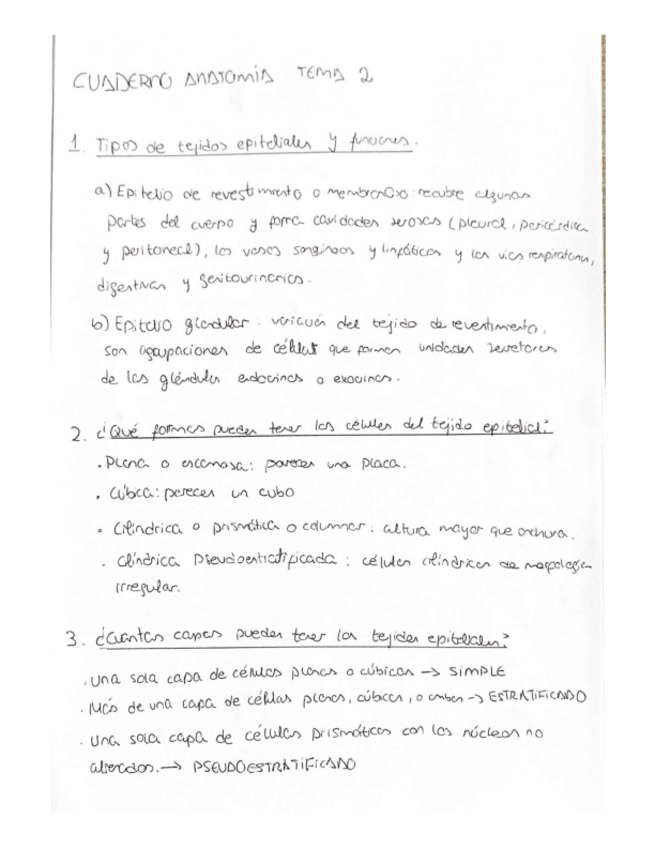 CUADERNO ANATOMÍA TEMA 2
1. Tipos de tejidos epiteliales y funciones.
a) Epitelio de revestimiento o membranoso: recubre algunas
partes del cuerpo y forma cavidades serosas (pleural, pericárdica
y peritoneal), los vasos sanginoos y linfáticos y las vías respiratorias,
digestivas y genitourinarias.
b) Epitelio glandular: variación del tejido de revestimiento,
son agrupaciones de células que forman unidades secretoras
de las glándulas endocrinas o exocrinas.
2. ¿Qué formas pueden tener las células del tejido epitelial?
· Plana o escamosa: parecen una placa.
· Cúbica: parecen un cubo
· Cilíndrica o prismática o columnar: altura mayor que anchura.
· Cilíndrica Pseudoestratificada: células cilíndricas de morfología
irregular.
3. ¿Cuántas capas pueden tener los tejidos epiteliales?
· Una sola capa de células planas o cúbicas → SIMPLE
· Más de una capa de células planas, cúbicas, o ambas → ESTRATIFICADO
· Una sola capa de células prismáticas con los núcleos no
alineados. → PSEUDOESTRATIFICADO